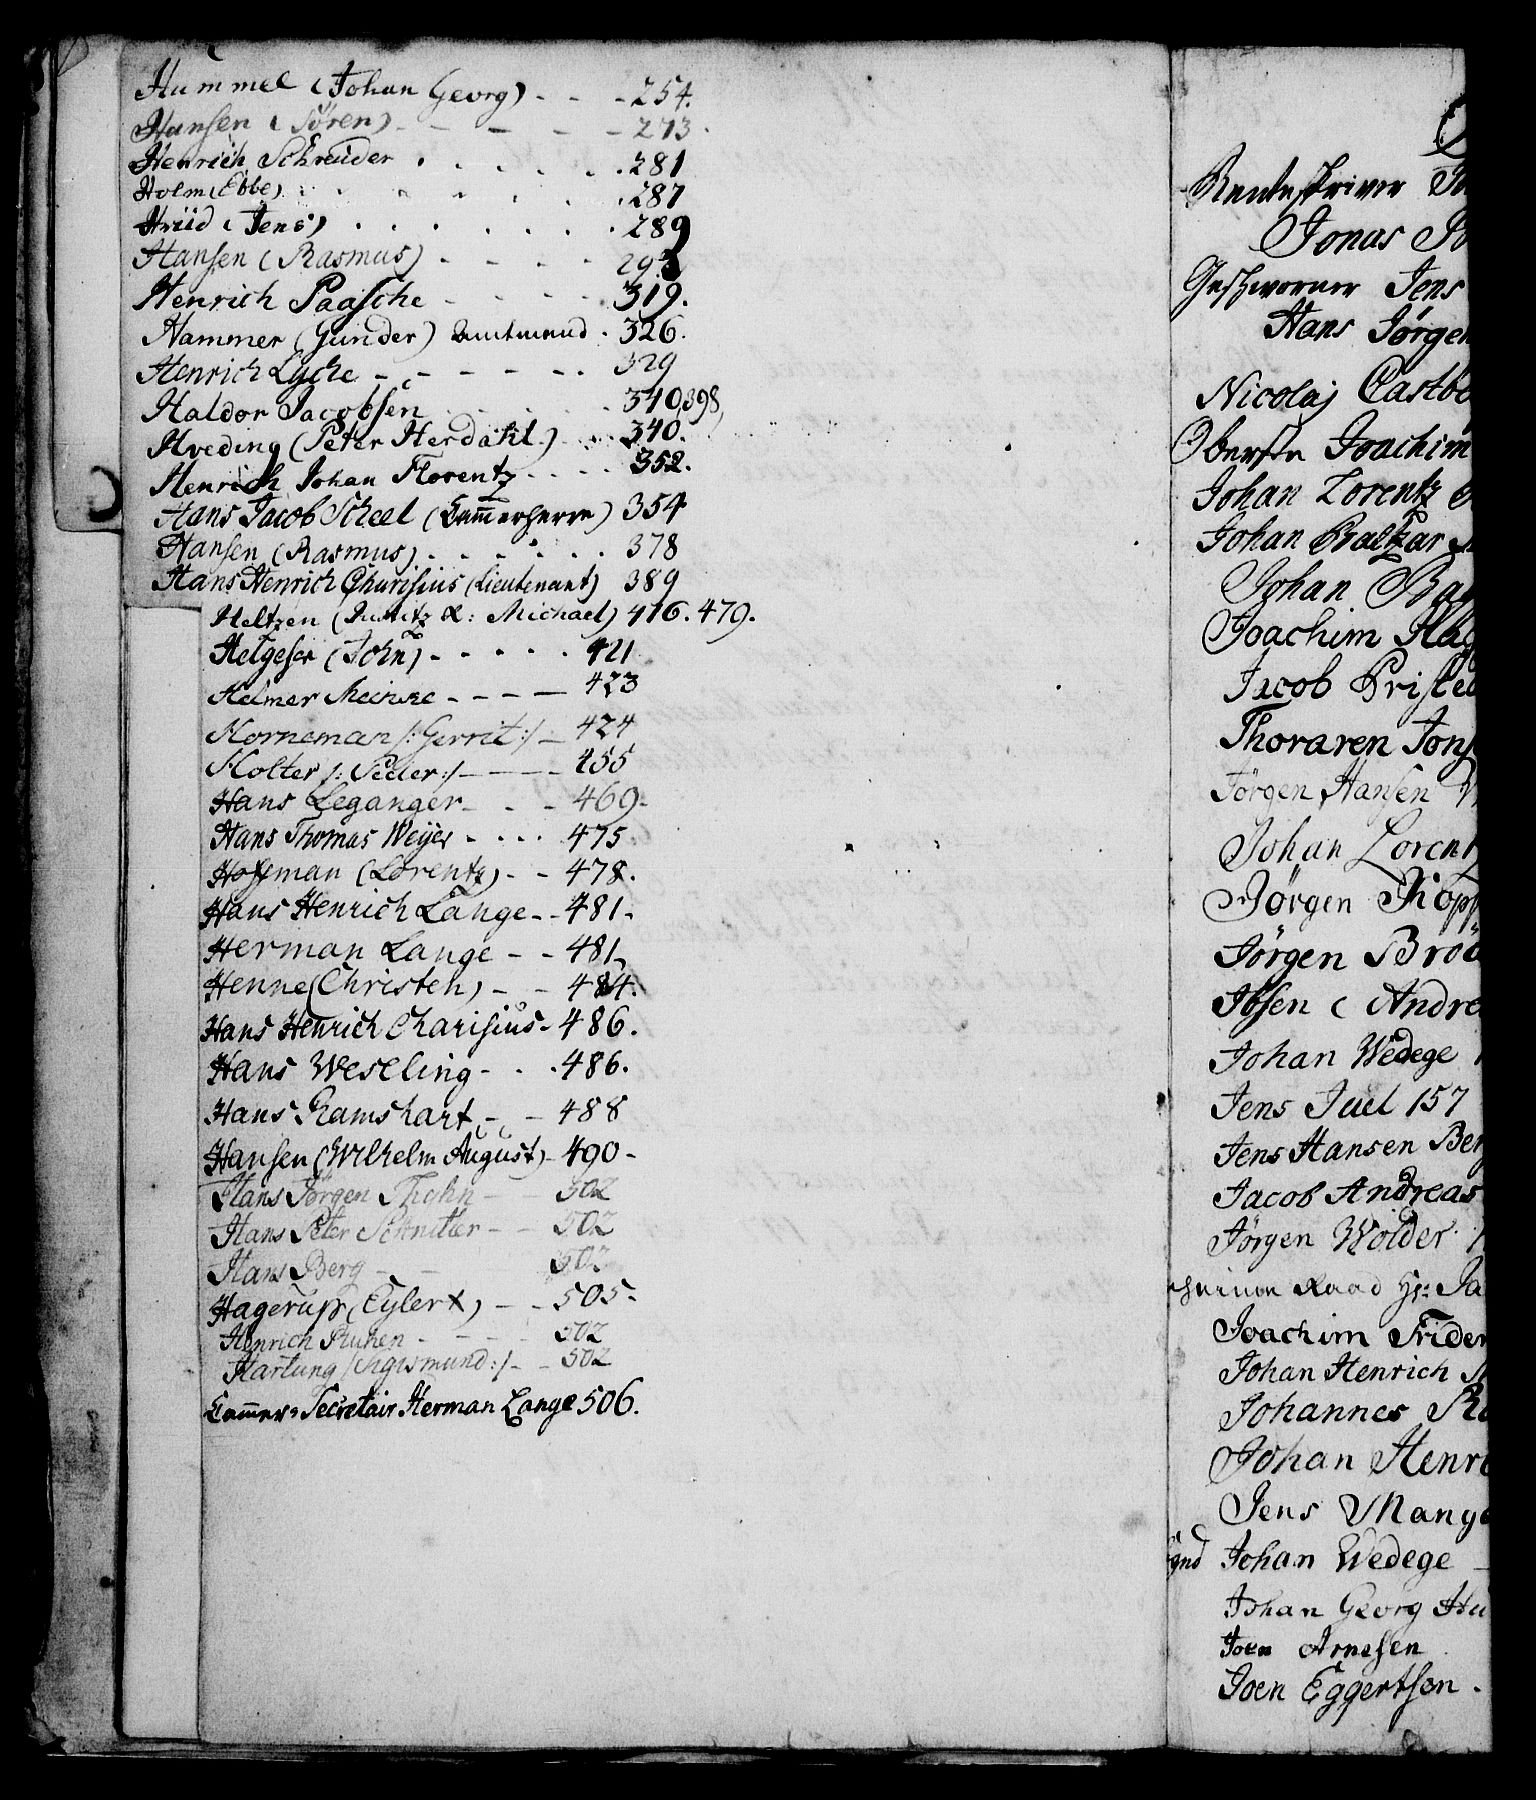 Hummel (Johan Georg) - - - 254.
Hansen (Sören) - - - - - 273.
Henrich Schreüder . . . . . . 281
Holm (Ebbe) . . . . . . 287
Hviid (Jens) . . . . . . . 289
Hansen (Rasmus) - - - - 293
Henrich Paasche - - - - 319.
Hammer (Gunder) Amtmand . 326.
Henrich Lyche - - - - - . . 329
Haldor Jacobsen . . . . . 340, 398,
Hveding (Peter Herdahl) . . . 340.
Henrich Johan Florentz . . . . 352.
Hans Jacob Scheel (Cammerherre) 354
Hansen (Rasmus) . . . . . . 378
Hans Henrich Charisius (Lieutenant) 389
Heltzen (Justitz R: Michael) 416. 479.
Helgesen (John) - . . . . 421
Helmer Meincke - - - - 423
Horneman /: Gerrit :/ - 424
Holter /: Peder :/ - - - - 455
Hans Leganger - . - 469.
Hans Thomas Weyer - . . . 475
Hoffman (Lorentz) - - 478.
Hans Henrich Lange - - 481.
Herman Lange - - 481,
Henne (Christen) - - 484.
Hans Henrich Charisius - 486.
Hans Weseling - . . 486.
Hans Ramshart - - 488
Hansen (Wilhelm August) - 490 -
Hans Jörgen Tholn - - 502
Hans Peter Schnitler - - 502
Hans Berg - - 502
Hagerup (Eylert) - - 505.
Henrich - - - - 502
Hartung /: Sigismund :/ - - 502
Cammer-Secretair Herman Lange 506.
Renteskriver
Jonas
Geschworner Jens
Hans Jörgen
Nicolaj Castbe
Oberste Joachim
Johan Lorentz
Johan Baltzar
Johan
Joachim
Jacob
Thoraren Jons
Jörgen Hansen
Johan Lorent
Jörgen
Jörgen
Ibsen (Andre
Johan Wedege
Jens Juel 157
Jens Hansen Ber
Jacob Andreas
Jörgen Wolder
Raad Hr: Ja
Joachim Frider
Johan Henrich
Johannes
Johan Henr
Jens Mang
Johan Wedege -
Johan Georg Hu
Joen Arnesen
Joen Eggertson.